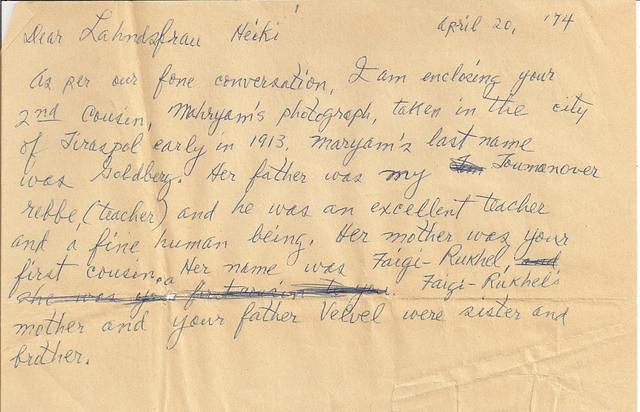 April 20, '74
Dear Lahndsfrau Heiki
As per our fone conversation, I am enclosing your
2nd Cousin, Mahryam's photograph, taken in the city
of Tiraspol early in 1913. Maryam's last name
was Goldberg. Her father was my Toumanover
rebbe, (teacher) and he was an excellent teacher
and a fine human being. Her mother was your
first cousin. Her name was Faigi-Rukhel, and
she was your to you. Faigi-Rukhel's
mother and your father Velvel were sister and
brother.